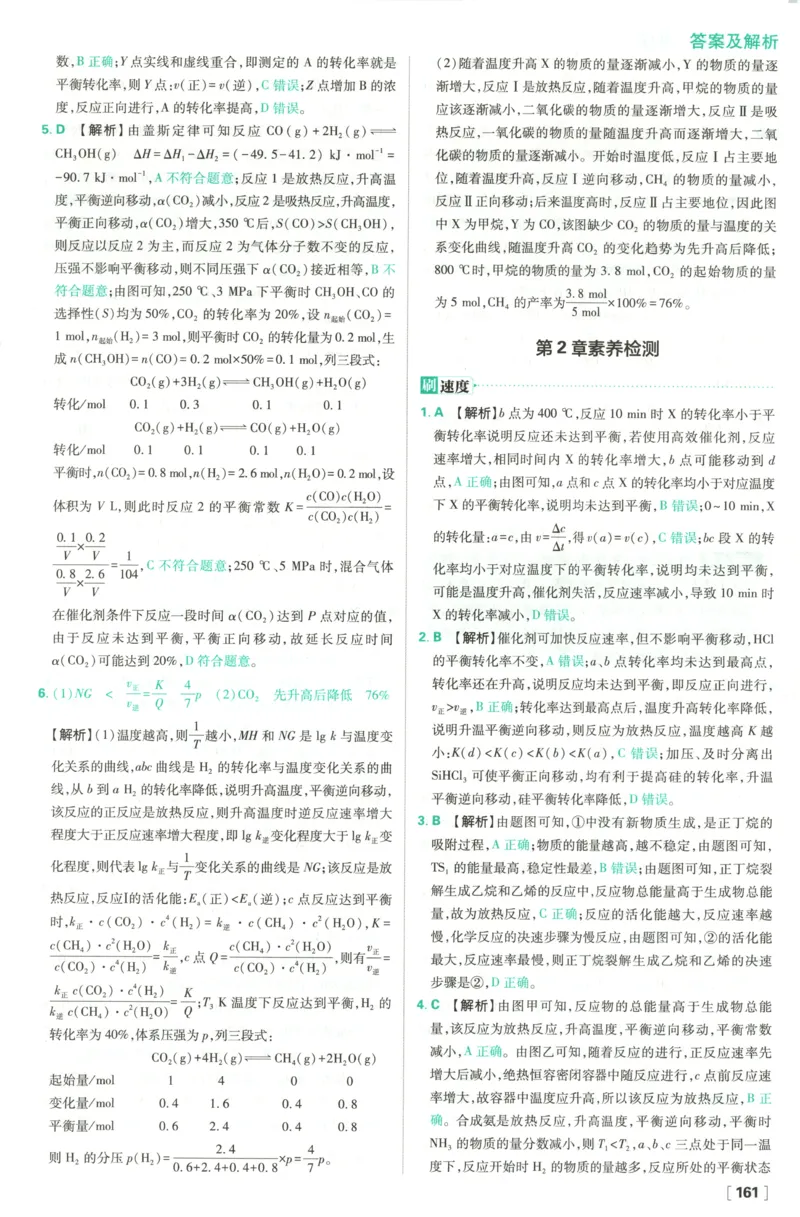 答案及解析
数,B 正确;Y点实线和虚线重合,即测定的 A 的转化率就是
平衡转化率,则 Y 点:v(正)= v(逆),C 错误;Z 点增加 B 的浓
度,反应正向进行,A 的转化率提高,D 错误。
5. D 【解析】由盖斯定律可知反应 CO(g)+2H₂(g)⇌
CH₃OH(g) ΔH=ΔH₁-ΔH₂=(-49.5-41.2) kJ·mol⁻¹=
-90.7 kJ·mol⁻¹,A 不符合题意;反应 1 是放热反应,升高温
度,平衡逆向移动,α(CO₂)减小,反应2是吸热反应,升高温度,
平衡正向移动,α(CO₂)增大,350 ℃后,S(CO)>S(CH₃OH),
则反应以反应 2 为主,而反应 2 为气体分子数不变的反应,
压强不影响平衡移动,则不同压强下 α(CO₂)接近相等,B 不
符合题意;由图可知,250 ℃、3 MPa 下平衡时 CH₃OH、CO 的
选择性(S)均为 50%,CO₂ 的转化率为 20%,设 n起始(CO₂)=
1 mol,n起始(H₂)= 3 mol,则平衡时 CO₂ 的转化量为 0.2 mol,生
成 n(CH₃OH)= n(CO)= 0.2 mol×50%=0.1 mol,列三段式:
CO₂(g)+3H₂(g)⇌CH₃OH(g)+H₂O(g)
转化/mol 0.1 0.3 0.1 0.1
CO₂(g)+H₂(g)⇌CO(g)+H₂O(g)
转化/mol 0.1 0.1 0.1 0.1
平衡时,n(CO₂)= 0.8 mol,n(H₂)= 2.6 mol,n(H₂O)= 0.2 mol,设
体积为 V L,则此时反应 2 的平衡常数 K= c(CO)c(H₂O)/c(CO₂)c(H₂) =
(0.1/V × 0.2/V)/(0.8/V × 2.6/V) = 1/104,C 不符合题意;250 ℃、5 MPa 时,混合气体
在催化剂条件下反应一段时间 α(CO₂)达到 P 点对应的值,
由于反应未达到平衡,平衡正向移动,故延长反应时间
α(CO₂)可能达到 20%,D 符合题意。
6. (1)NG < v正/v逆 = K/Q 4/7 p (2)CO₂ 先升高后降低 76%
【解析】(1)温度越高,则 1/T 越小,MH 和 NG 是 lg k 与温度变
化关系的曲线,abc 曲线是 H₂ 的转化率与温度变化关系的曲
线,从 b 到 a H₂ 的转化率降低,说明升高温度,平衡逆向移动,
该反应的正反应是放热反应,则升高温度时逆反应速率增大
程度大于正反应速率增大程度,即 lg k逆变化程度大于 lg k正变
化程度,则代表 lg k正与 1/T 变化关系的曲线是 NG;该反应是放
热反应,反应Ⅰ的活化能:Eₐ(正)<Eₐ(逆);c 点反应达到平衡
时,k正·c(CO₂)·c⁴(H₂)= k逆·c(CH₄)·c²(H₂O),K=
c(CH₄)·c²(H₂O)/c(CO₂)·c⁴(H₂) = k正/k逆,c 点 Q= c(CH₄)·c²(H₂O)/c(CO₂)·c⁴(H₂),则有 v正/v逆 =
k正 c(CO₂)·c⁴(H₂)/k逆 c(CH₄)·c²(H₂O) = K/Q;T₃ K 温度下反应达到平衡,H₂ 的
转化率为 40%,体系压强为 p,列三段式:
CO₂(g)+4H₂(g)⇌CH₄(g)+2H₂O(g)
起始量/mol 1 4 0 0
变化量/mol 0.4 1.6 0.4 0.8
平衡量/mol 0.6 2.4 0.4 0.8
则 H₂ 的分压 p(H₂)= 2.4/(0.6+2.4+0.4+0.8) ×p= 4/7 p。
(2)随着温度升高 X 的物质的量逐渐减小,Y 的物质的量逐
渐增大,反应Ⅰ是放热反应,随着温度升高,甲烷的物质的量
应该逐渐减小,二氧化碳的物质的量逐渐增大,反应Ⅱ是吸
热反应,一氧化碳的物质的量随温度升高而逐渐增大,二氧
化碳的物质的量逐渐减小。开始时温度低,反应Ⅰ占主要地
位,随着温度升高,反应Ⅰ逆向移动,CH₄ 的物质的量减小,
反应Ⅱ正向移动;后来温度高时,反应Ⅱ占主要地位,因此图
中 X 为甲烷,Y 为 CO,该图缺少 CO₂ 的物质的量与温度的关
系变化曲线,随温度升高 CO₂ 的变化趋势为先升高后降低;
800 ℃时,甲烷的物质的量为 3.8 mol,CO₂ 的起始物质的量
为 5 mol,CH₄ 的产率为 3.8 mol/5 mol ×100%=76%。
第 2 章素养检测
刷速度
1. A 【解析】b 点为 400 ℃,反应 10 min 时 X 的转化率小于平
衡转化率说明反应还未达到平衡,若使用高效催化剂,反应
速率增大,相同时间内 X 的转化率增大,b 点可能移动到 d
点,A 正确;由图可知,a 点和 c 点 X 的转化率均小于对应温度
下 X 的平衡转化率,说明均未达到平衡,B 错误;0~10 min,X
的转化量:a=c,由 v= Δc/Δt,得 v(a)= v(c),C 错误;bc 段 X 的转
化率均小于对应温度下的平衡转化率,说明均未达到平衡,
可能是温度升高,催化剂失活,反应速率减小,导致 10 min 时
X 的转化率减小,D 错误。
2. B 【解析】催化剂可加快反应速率,但不影响平衡移动,HCl
的平衡转化率不变,A 错误;a、b 点转化率均未达到最高点,
转化率还在升高,说明反应均未达到平衡,即反应正向进行,
v正>v逆,B 正确;转化率达到最高点后,温度升高转化率降低,
说明升温平衡逆向移动,则反应为放热反应,温度越高 K 越
小:K(d)<K(c)<K(b)<K(a),C 错误;加压、及时分离出
SiHCl₃ 可使平衡正向移动,均有利于提高硅的转化率,升温
平衡逆向移动,硅平衡转化率降低,D 错误。
3. B 【解析】由题图可知,①中没有新物质生成,是正丁烷的
吸附过程,A 正确;物质的能量越高,越不稳定,由题图可知,
TS₁ 的能量最高,稳定性最差,B 错误;由题图可知,正丁烷裂
解生成乙烷和乙烯的反应中,反应物总能量高于生成物总能
量,故为放热反应,C 正确;反应的活化能越大,反应速率越
慢,化学反应的决速步骤为慢反应,由题图可知,②的活化能
最大,反应速率最慢,则正丁烷裂解生成乙烷和乙烯的决速
步骤是②,D 正确。
4. C 【解析】由图甲可知,反应物的总能量高于生成物总能
量,该反应为放热反应,升高温度,平衡逆向移动,平衡常数
减小,A 正确。由图乙可知,随着反应的进行,正反应速率先
增大后减小,绝热恒容密闭容器中随反应进行,c 点前反应速
率增大,故容器中温度应升高,所以该反应为放热反应,B 正
确。合成氨是放热反应,升高温度,平衡逆向移动,平衡时
NH₃ 的物质的量分数减小,则 T₁<T₂,a、b、c 三点处于同一温
度下,反应开始时 H₂ 的物质的量越多,反应所处的平衡状态
[161]